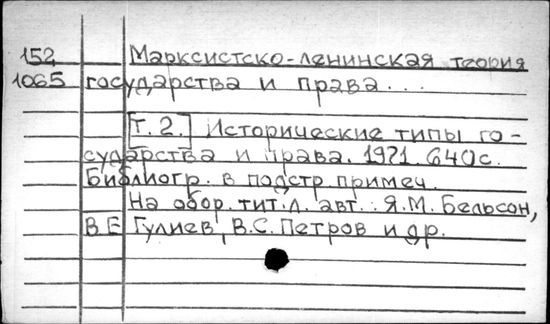 152 Марксистско-ленинская теория
1065 государства и права...
Т. 2. Исторические типы го-
сударства и права. 1971. 640с.
Библиогр. в подстр. примеч.
На обор. тит. л. авт.: Я.М. Бельсон,
В Е Гулиев, В.С. Петров и др.